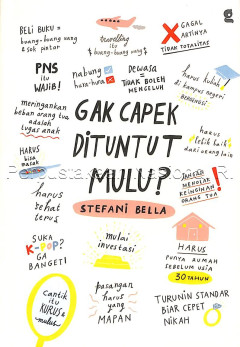 BELI BUKU =
buang-buang uang
& sok pintar
travelling
itu
buang-buang uang
GAGAL
ARTINYA
TIDAK TOTALITAS
PNS
itu
WAJIB!
nabung
hura-hura
DEWASA
=
TIDAK BOLEH
MENGELUH
harus kuliah
di kampus negeri
BERGENGSI
meringankan
beban orang tua
adalah
tugas anak
GAK CAPEK
DITUNTUT
MULU?
STEFANI BELLA
harus
lebih baik
dari orang lain
HARUS
bisa
masak
harus
sehat
terus
JANGAN
MENOLAK
KEINGINAN
ORANG TUA!
SUKA
K-POP?
GA
BANGET!
mulai
investasi
HARUS
PUNYA RUMAH
SEBELUM USIA
30 TAHUN
CANTIK
itu
KURUS &
mulus
pasangan
harus
yang
MAPAN
TURUNIN STANDAR
BIAR CEPET
NIKAH